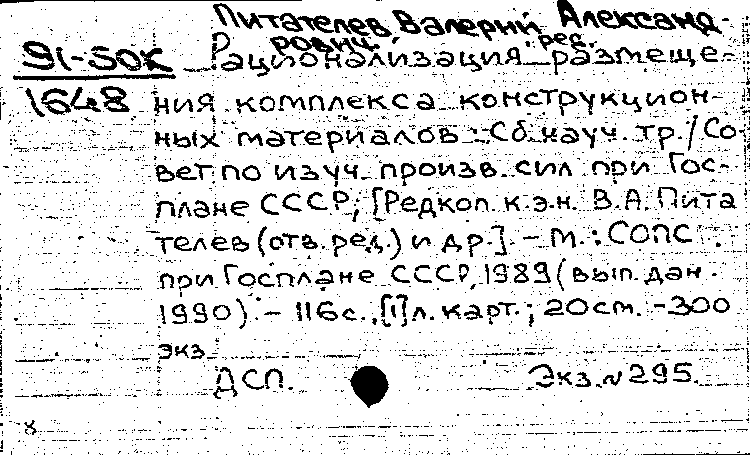 Питателев, Валерий Александ-
рович, рес.
91-50К Рационализация размеще-
1648 ния комплекса конструкцион-
ных материалов : Сб. науч. тр./Со-
вет по изуч. произв. сил при Гос-
плане СССР; [Редкол. к.э.н. В.А. Пита
телев (отв. ред.) и др.]. - М. : СОПС
при Госплане СССР, 1989 (вып. дан.
1990). - 116 с., [1] л. карт.; 20 см. - 300
экз
ДСП. Экз. № 295.
8